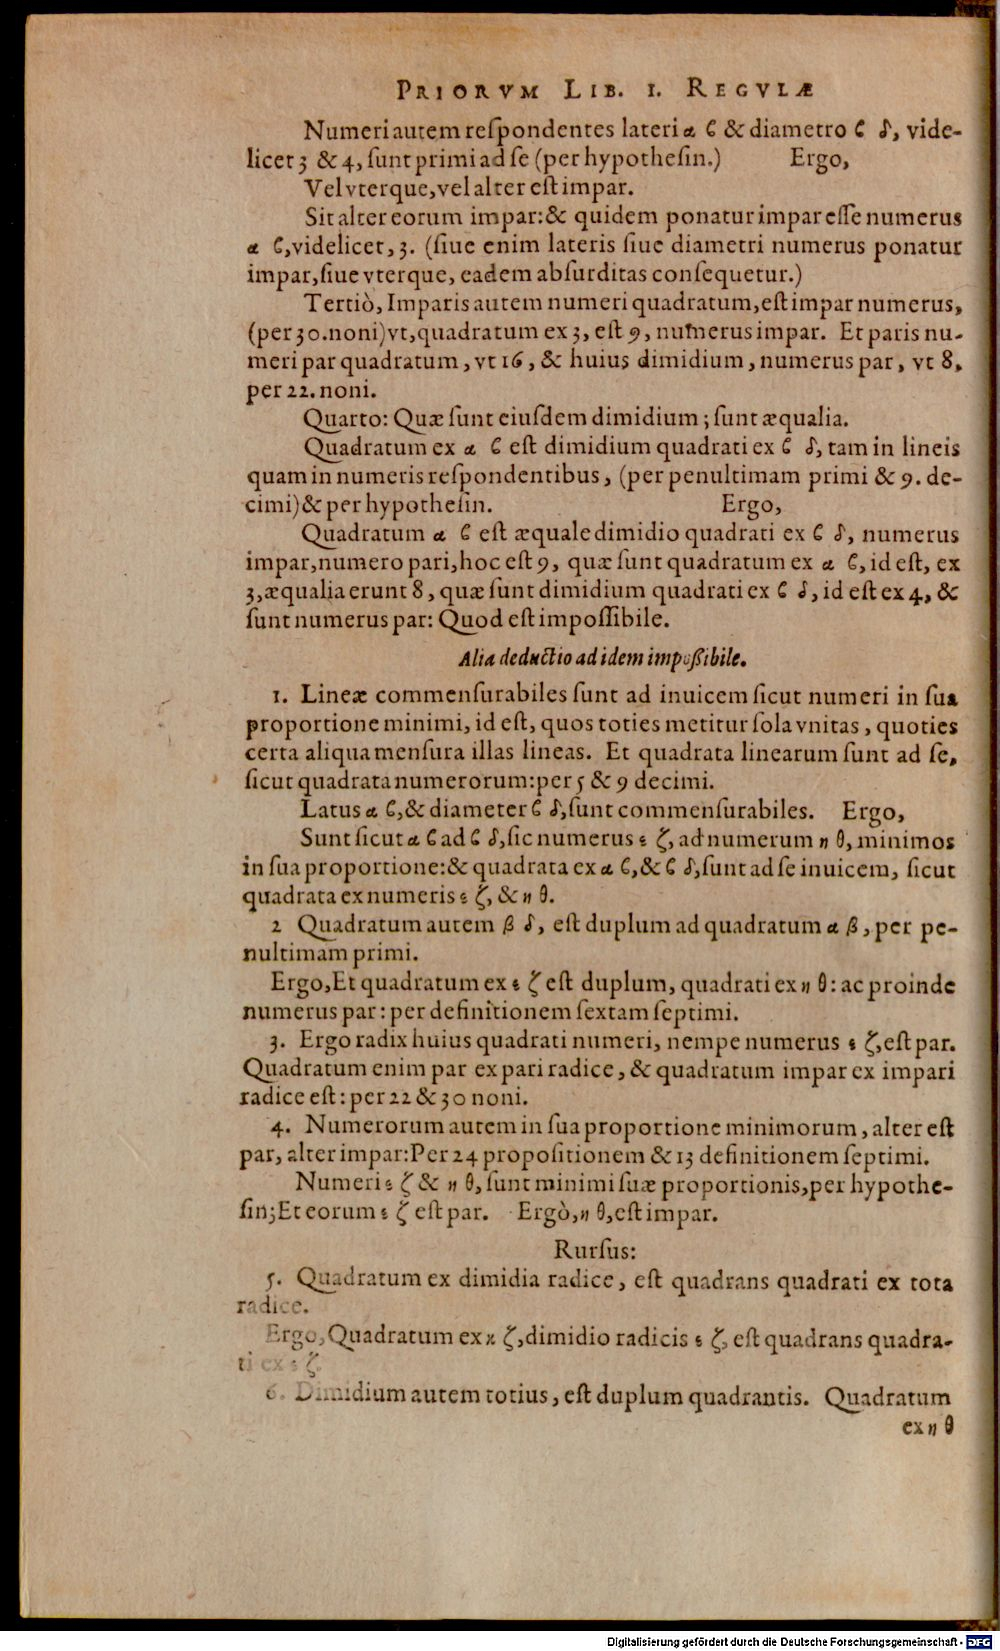 PRIORVM LIB. I. REGVLÆ
Numeri autem reſpondentes lateri α ϐ & diametro ϐ δ, vide-
licet 3 & 4, ſunt primi ad ſe (per hypotheſin.) Ergo,
Vel vterque, vel alter eſt impar.
Sit alter eorum impar: & quidem ponatur impar eſſe numerus
α ϐ, videlicet, 3. (ſiue enim lateris ſiue diametri numerus ponatur
impar, ſiue vterque, eadem abſurditas conſequetur.)
Tertiò, Imparis autem numeri quadratum, eſt impar numerus,
(per 30. noni) vt, quadratum ex 3, eſt 9, numerus impar. Et paris nu-
meri par quadratum, vt 16, & huius dimidium, numerus par, vt 8,
per 22. noni.
Quarto: Quæ ſunt eiuſdem dimidium; ſunt æqualia.
Quadratum ex α ϐ eſt dimidium quadrati ex ϐ δ, tam in lineis
quam in numeris reſpondentibus, (per penultimam primi & 9. de-
cimi) & per hypotheſin. Ergo,
Quadratum α ϐ eſt æquale dimidio quadrati ex ϐ δ, numerus
impar, numero pari, hoc eſt 9, quæ ſunt quadratum ex α ϐ, id eſt, ex
3, æqualia erunt 8, quæ ſunt dimidium quadrati ex ϐ δ, id eſt ex 4, &
ſunt numerus par: Quod eſt impoſſibile.
Alia deductio ad idem impoßibile.
1. Lineæ commenſurabiles ſunt ad inuicem ſicut numeri in ſua
proportione minimi, id eſt, quos toties metitur ſola vnitas, quoties
certa aliqua menſura illas lineas. Et quadrata linearum ſunt ad ſe,
ſicut quadrata numerorum: per 5 & 9 decimi.
Latus α ϐ, & diameter ϐ δ, ſunt commenſurabiles. Ergo,
Sunt ſicut α ϐ ad ϐ δ, ſic numerus ε ζ, ad numerum η θ, minimos
in ſua proportione: & quadrata ex α ϐ, & ϐ δ, ſunt ad ſe inuicem, ſicut
quadrata ex numeris ε ζ, & η θ.
2 Quadratum autem β δ, eſt duplum ad quadratum α β, per pe-
nultimam primi.
Ergo, Et quadratum ex ε ζ eſt duplum, quadrati ex η θ: ac proinde
numerus par: per definitionem ſextam ſeptimi.
3. Ergo radix huius quadrati numeri, nempe numerus ε ζ, eſt par.
Quadratum enim par ex pari radice, & quadratum impar ex impari
radice eſt: per 22 & 30 noni.
4. Numerorum autem in ſua proportione minimorum, alter eſt
par, alter impar: Per 24 propoſitionem & 13 definitionem ſeptimi.
Numeri ε ζ & η θ, ſunt minimi ſuæ proportionis, per hypothe-
ſin; Et eorum ε ζ eſt par. Ergò, η θ, eſt impar.
Rurſus:
5. Quadratum ex dimidia radice, eſt quadrans quadrati ex tota
radice.
Ergo, Quadratum ex κ ζ, dimidio radicis ε ζ, eſt quadrans quadra-
ti ex ε ζ.
6. Dimidium autem totius, eſt duplum quadrantis. Quadratum
ex η θ
Digitalisierung gefördert durch die Deutsche Forschungsgemeinschaft - DFG